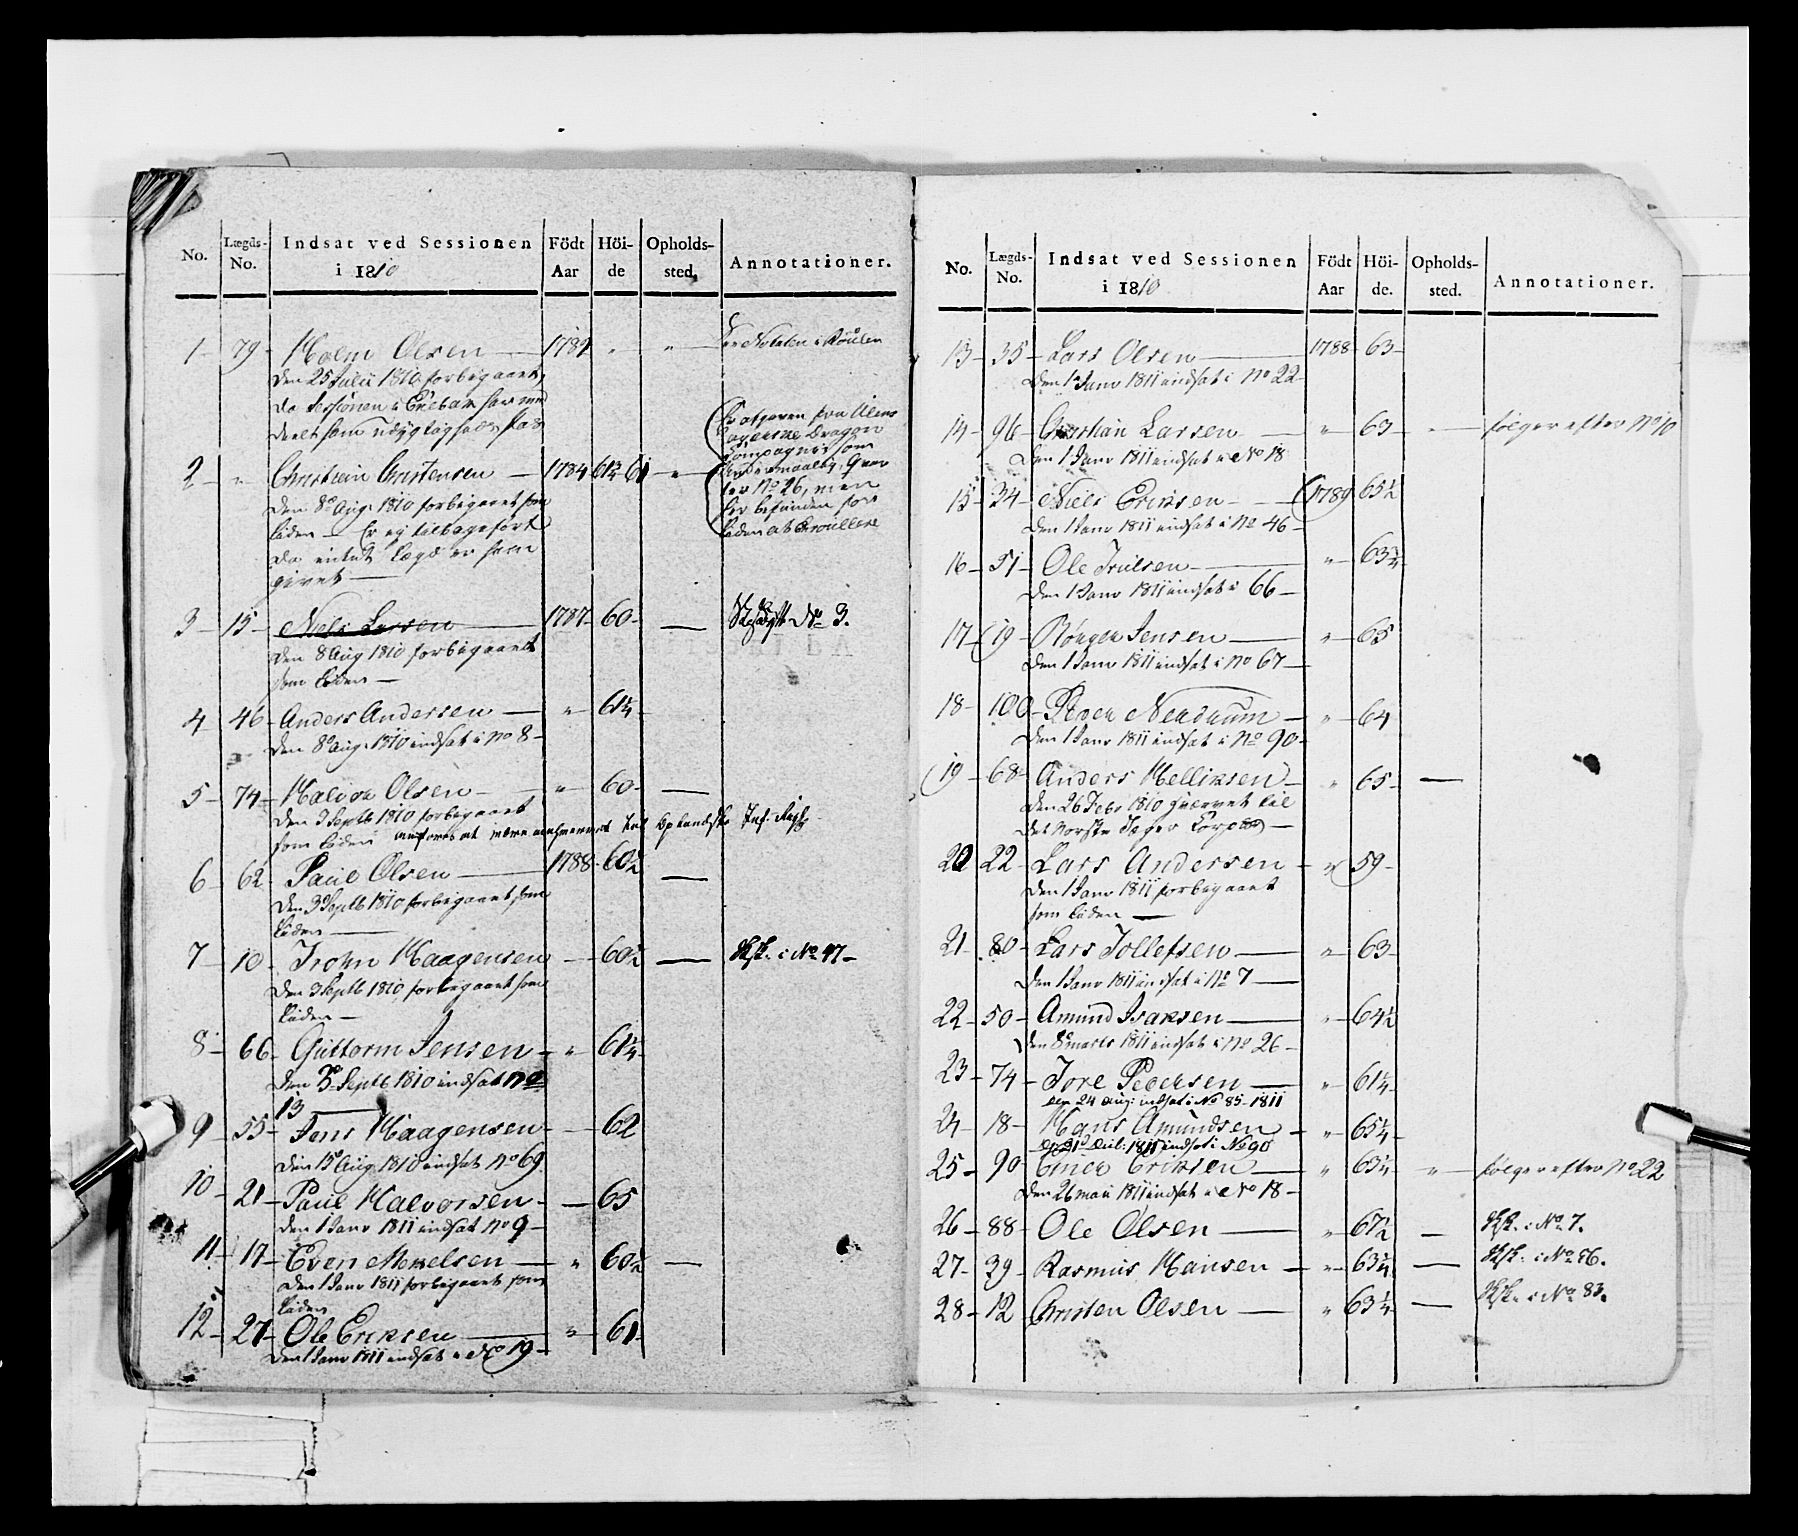 No. Lægds-No. Indsat ved Sessionen i 1810 Födt Aar Höi-de Opholds-sted. Annotationer.
1 79 Holm Olsen 1789 " "
Den 25 Julii 1810 forbigaaet,
da Sessionen
2 " Christian Christensen 1784 61 "
Den 8de Aug. 1810 forbigaaet som
liden
da intet Lægd er
givet
Compagnie som
No 26, men
er befunden for
liden
3 15 Niels Larsen 1787 60 No 3.
Den 8 Aug 1810 forbigaaet
som liden
4 46 Anders Andersen " 61¼
Den 8de Aug. 1810 indsat i No 8
5 74 Halvor Olsen " 60
Den 3 Septb 1810 forbigaaet
som liden
6 62 Paul Olsen 1788 60½
Den 3 Septb 1810 forbigaaet som
liden
7 10 Trohn Haagensen 60½ i No 47
Den 3 Septb 1810 forbigaaet som
liden
8 66 Guttorm Jensen " 61¼
Den 3 Septb 1810 indsat No
13
9 55 Jens Haagensen 62
Den 15 Aug 1810 indsat No 69
10 21 Paul Halvorsen 65
Den 1 Janv 1811 indsat No 9
11 17 Even " 60½
Den 1 Janv 1811 forbigaaet som
liden
12 27 Ole Eriksen " 61
Den 1 Janv 1811 indsat i No 19
No. Lægds-No. Indsat ved Sessionen i 1810 Födt Aar Höi-de. Opholds-sted. Annotationer.
13 35 Lars Olsen 1788 63
Den 1 Janv 1811 indsat i No 22
14 96 Christian Larsen " 63 " følger efter No 10
Den 1 Janv 1811 indsat i No 18
15 34 Niels Eriksen 1789 65½
Den 1 Janv 1811 indsat i No 46
16 51 Ole Trulsen " 63¾
Den 1 Janv 1811 indsat i 66
17 19 Jensen " 65
Den 1 Janv 1811 indsat i No 67
18 100 Peder Nerdrum " 64
Den 1 Janv 1811 indsat i No 90
19 68 Anders Helliksen " 65
Den 26 Febr 1810 hvervet til
det Norske Jæger Corps
20 22 Lars Andersen " 59
Den 1 Janv 1811 forbigaaet
som liden
21 80 Lars Tollefsen " 63
Den 1 Janv 1811 indsat i No 7
22 50 Amund Isaksen " 64½
Den 8 marts 1811 indsat i No 26
23 74 Tore Pedersen " 61¼
Den 24 Aug: indsat i No 85 1811
24 18 Hans Amundsen " 65¼
1811 indsat i No 90
25 90 Einer Eriksen " 63¼ " følger efter No 22
Den 26 mai 1811 indsat i No 18
26 88 Ole Olsen " 67½ i No 7.
27 39 Rasmus Hansen " 63¼ i No 56.
28 12 Christen Olsen " 63¼ i No 83.